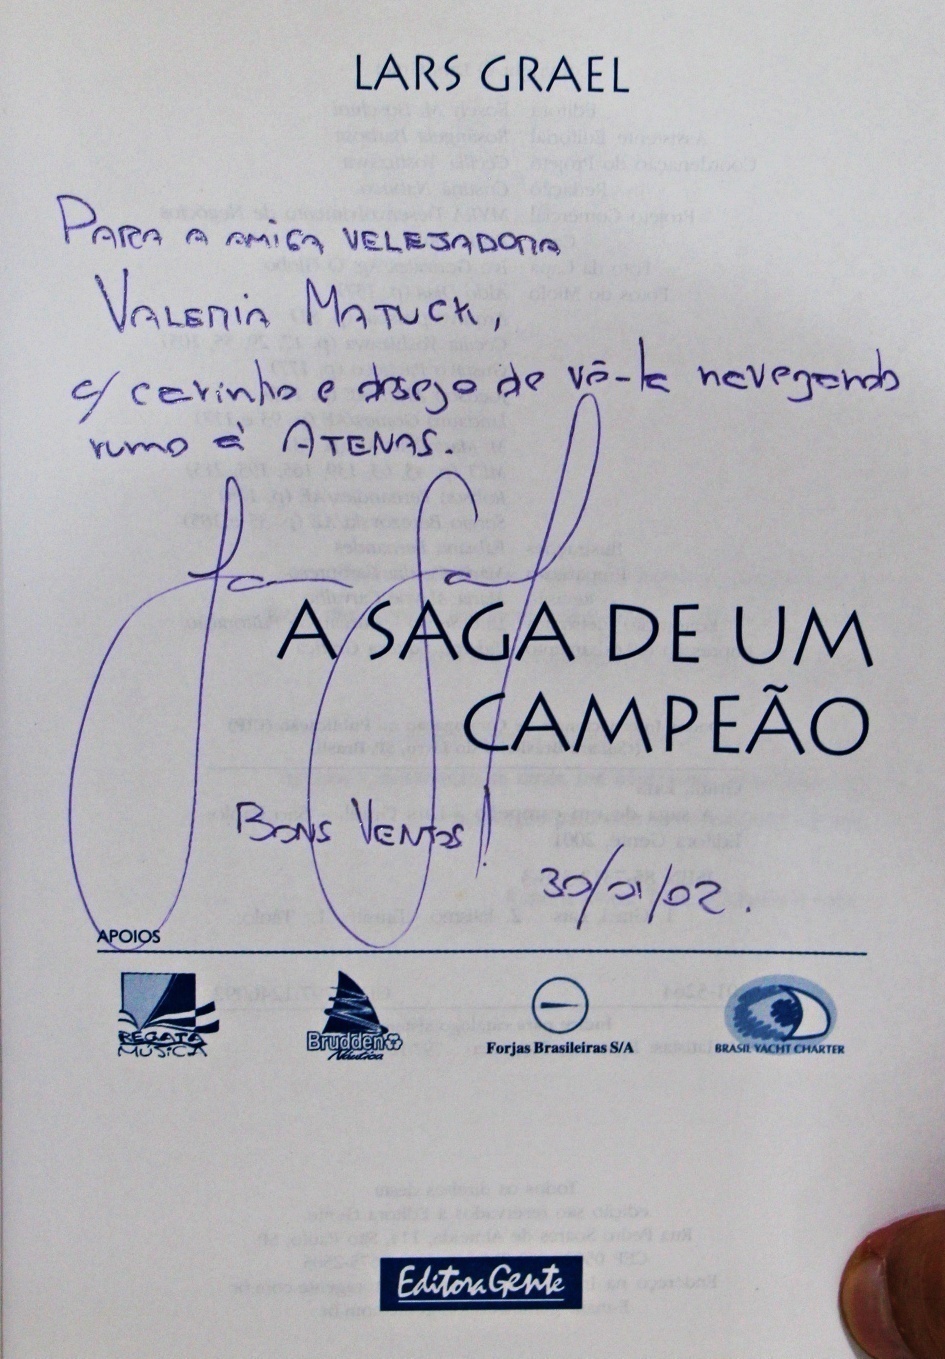 LARS GRAEL
PARA A AMIGA VELEJADORA
VALERIA MATUCK,
c/ carinho e desejo de vê-la navegando
rumo à ATENAS.
A SAGA DE UM
CAMPEÃO
BONS VENTOS!
30/01/02.
APOIOS
REGATA
MÚSICA
Brudden
Náutica
Forjas Brasileiras S/A
BRASIL YACHT CHARTER
Editora Gente